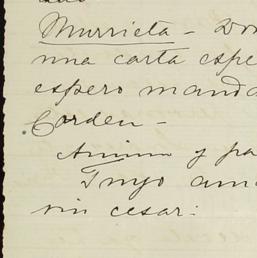 Murrieta - Don
una carta espe
espero manda
Corden -
Animo y pa
Tuyo am
sin cesar: